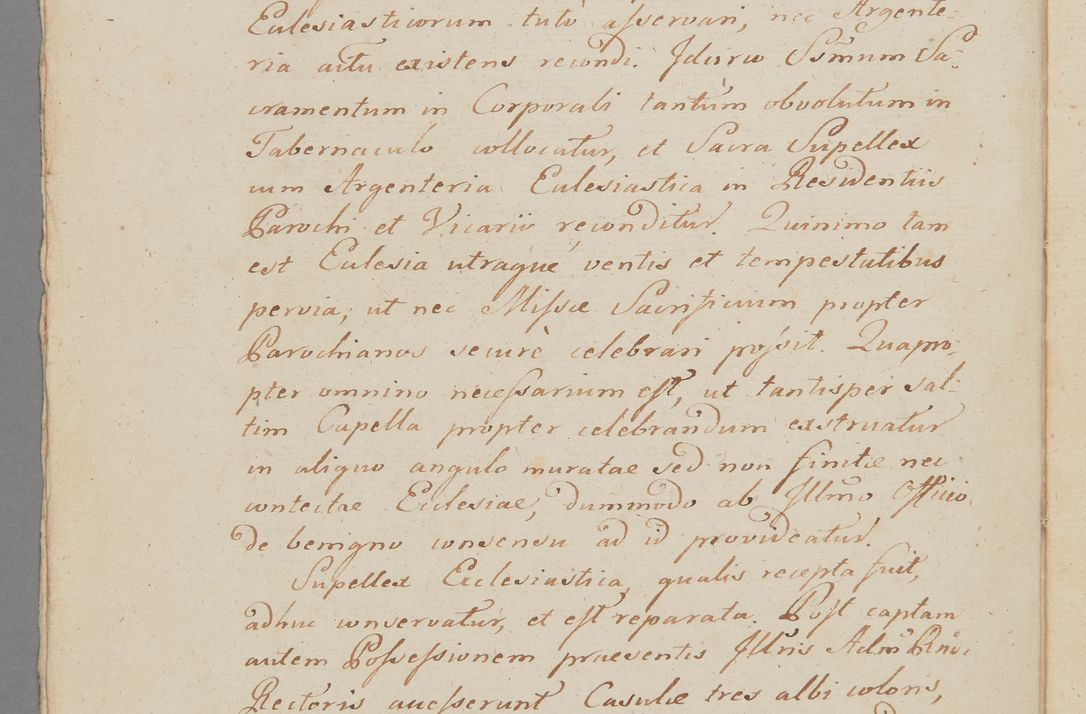 Ecclesiasticorum tuto asservari, nec Argente-
ria actu existens recondi. Idcirco Ssmum Sa-
cramentum in Corporali tantùm obvolutum in
Tabernaculo collocatur, et Sacra Supellex
cum Argenteria Ecclesiastica in Residentiis
Parochi et Vicarii reconditur. Quinimo tam
est Ecclesia utraque ventis et tempestatibus
pervia, ut nec Missæ Sacrificium propter
Parochianos securè celebrari possit. Quapro-
pter omnino necessarium est, ut tantisper sal-
tim Capella propter celebrandum exstruatur
in aliquo angulo muratae sed non finitæ nec
contectae Ecclesiae, dummodo ab Illmo Officio
de benigno consensu ad id provideatur.
Supellex Ecclesiastica, qualis recepta fuit,
adhuc conservatur, et est reparata. Post captam
autem Possessionem praesentis Illris Adm Rndi
Rectoris accesserunt Casulæ tres albi coloris,